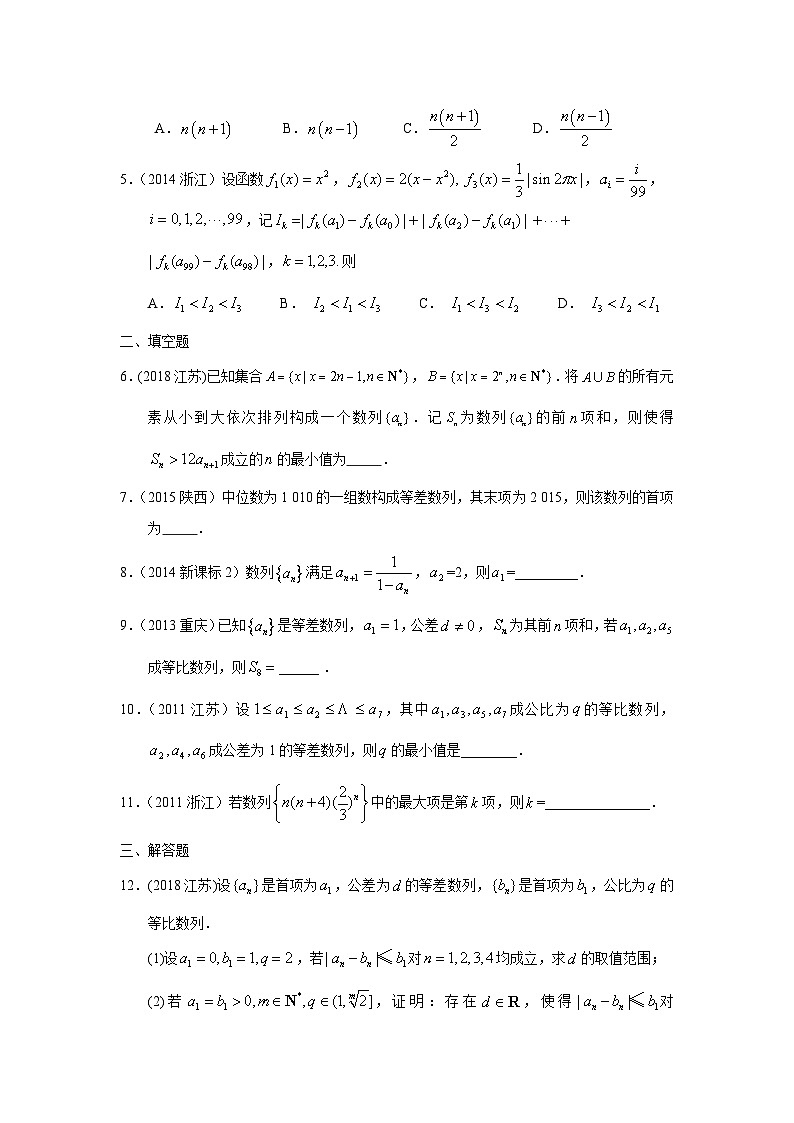 A. n(n+1)　B. n(n−1)　C. n(n+1)/2　D. n(n−1)/2
5.（2014浙江）设函数 f₁(x) = x²，f₂(x) = 2(x − x²), f₃(x) = 1/3 |sin 2πx|，aᵢ = i/99，
i = 0,1,2,⋯,99，记 Iₖ =| fₖ(a₁) − fₖ(a₀) | + | fₖ(a₂) − fₖ(a₁) | +⋯+
| fₖ(a₉₉) − fₖ(a₉₈) |，k = 1,2,3. 则
A. I₁ < I₂ < I₃　B. I₂ < I₁ < I₃　C. I₁ < I₃ < I₂　D. I₃ < I₂ < I₁
二、填空题
6.(2018江苏)已知集合 A = {x | x = 2n − 1, n ∈ N*}，B = {x | x = 2ⁿ, n ∈ N*}．将 A∪B 的所有元
素从小到大依次排列构成一个数列{aₙ}．记 Sₙ 为数列{aₙ}的前 n 项和，则使得
Sₙ > 12aₙ₊₁ 成立的 n 的最小值为_____．
7.（2015陕西）中位数为1 010的一组数构成等差数列，其末项为2 015，则该数列的首项
为_____．
8.（2014新课标2）数列{aₙ}满足 aₙ₊₁ = 1/(1−aₙ)，a₂ =2，则 a₁ =_________．
9.（2013重庆）已知{aₙ}是等差数列，a₁ = 1，公差 d ≠ 0，Sₙ 为其前 n 项和，若 a₁, a₂, a₅
成等比数列，则 S₈ = ______．
10.（2011江苏）设 1 ≤ a₁ ≤ a₂ ≤ Λ ≤ a₇，其中 a₁, a₃, a₅, a₇ 成公比为 q 的等比数列，
a₂, a₄, a₆ 成公差为1的等差数列，则 q 的最小值是________．
11.（2011浙江）若数列{n(n+4)(2/3)ⁿ}中的最大项是第 k 项，则 k =_______________．
三、解答题
12. (2018江苏)设{aₙ}是首项为 a₁，公差为 d 的等差数列，{bₙ}是首项为 b₁，公比为 q 的
等比数列．
(1)设 a₁ = 0, b₁ = 1, q = 2，若| aₙ − bₙ |≤ b₁ 对 n = 1,2,3,4 均成立，求 d 的取值范围；
(2)若 a₁ = b₁ > 0, m ∈ N*, q ∈ (1, ᵐ√2]，证明：存在 d ∈ R，使得| aₙ − bₙ |≤ b₁ 对